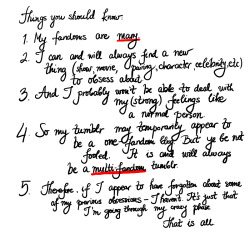 Things you should know
1. My fandoms are many
2. I can and will always find a new
thing (show, movie, pairing, character, celebrity, etc)
to obsess about
3. And I probably won't be able to deal with
my (strong) feelings like
a normal person
4. So my tumblr may temporarily appear to
be a one-fandom blog But ye be not
fooled. It is and will always
be a multi-fandom tumblr.
5. Therefore, if I appear to have forgotten about some
of my previous obsessions - I haven't. It's just that
I'm going through my crazy phase
That is all